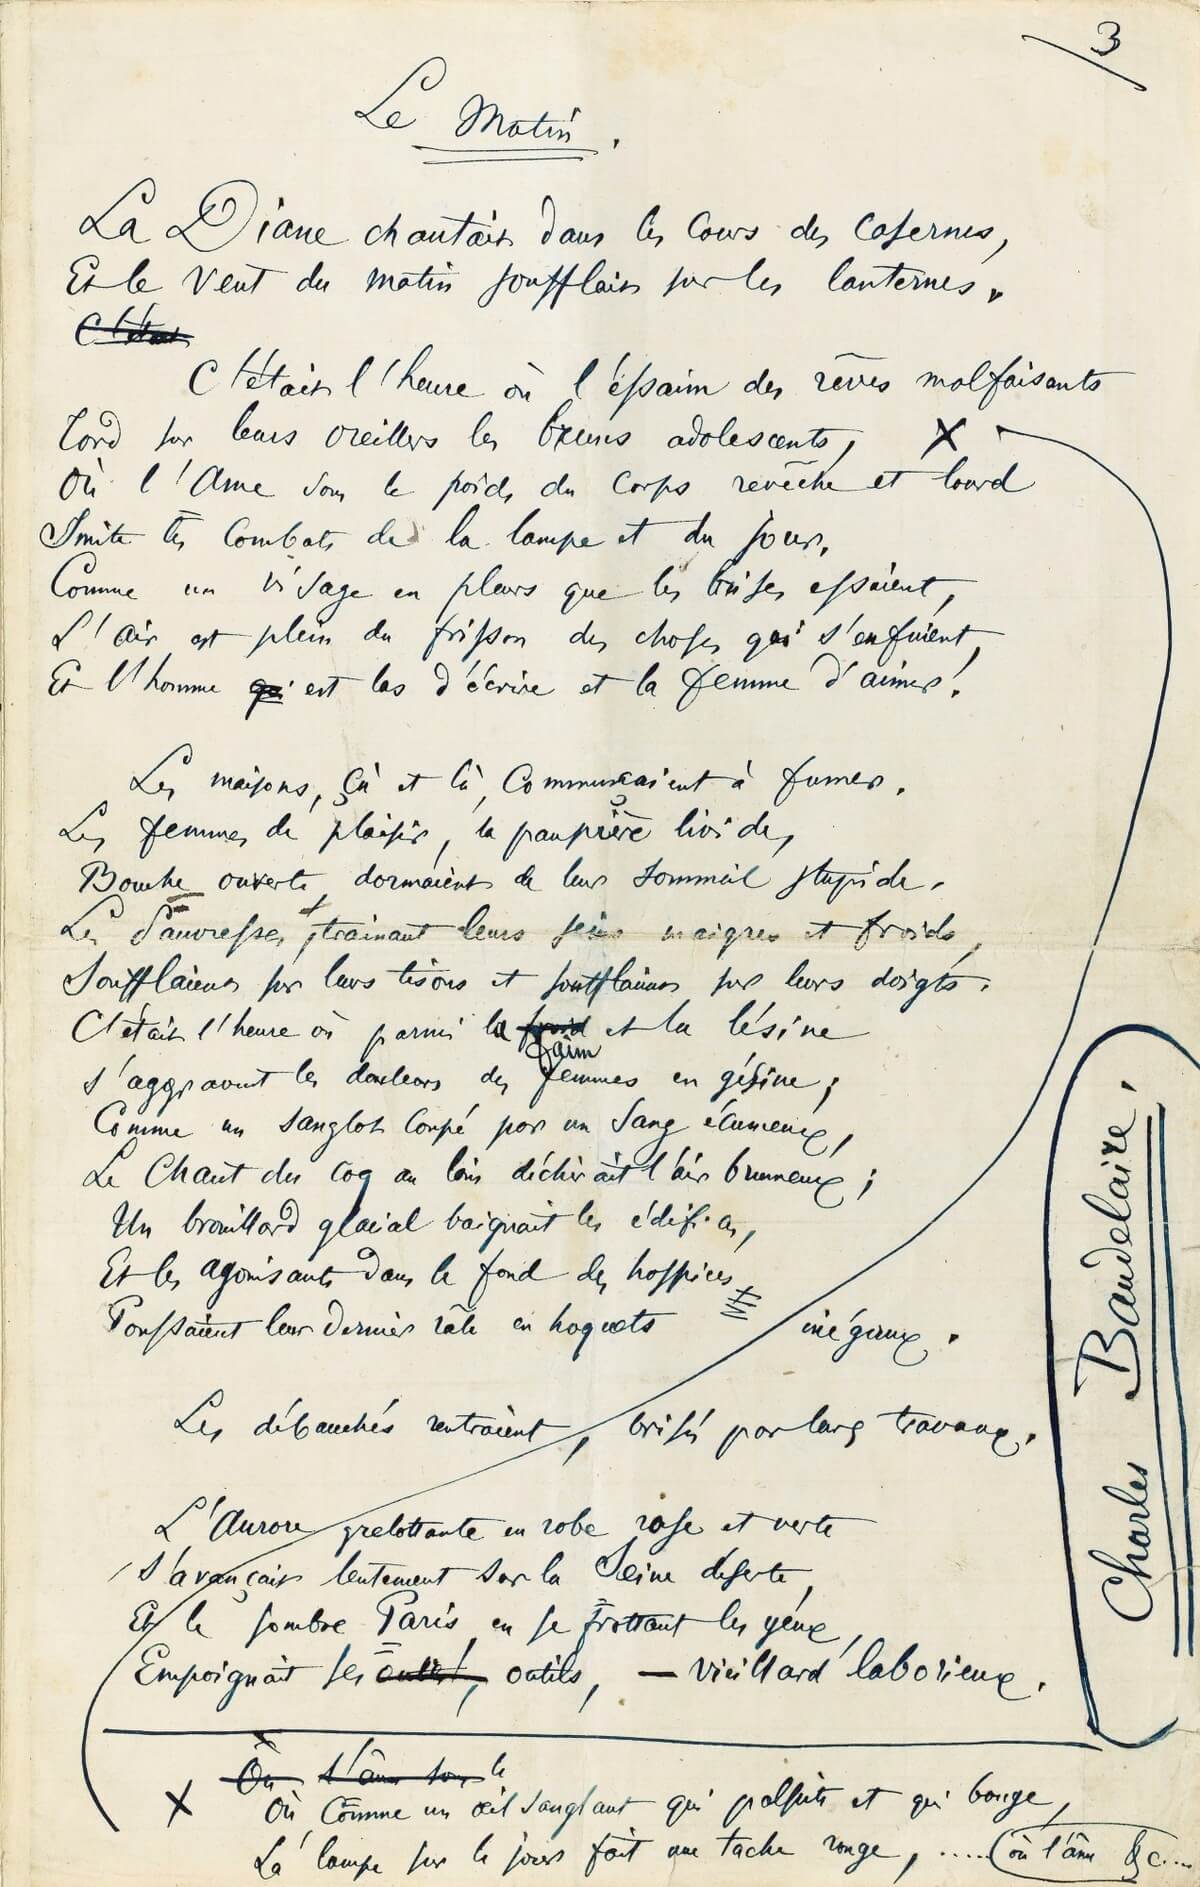 3
Le Matin.
La Diane chantait dans les cours des casernes,
Et le vent du matin soufflait sur les lanternes.
C'était
C'était l'heure où l'éssaim des rêves malfaisants
Tord sur leurs oreillers les bruns adolescents, X
Où l'Ame sous le poids du corps revêche et lourd
Imite les combats de la lampe et du jour,
Comme un visage en pleurs que les brises essuient,
L'air est plein du frisson des choses qui s'enfuient,
Et l'homme qui est las d'écrire et la femme d'aimer.
Les maisons, çà et là, commençaient à fumer.
Les femmes de plaisir, la paupière livide,
Bouche ouverte, dormaient de leur sommeil stupide.
Les Pauvresses, trainant leurs seins maigres et froids,
Soufflaient sur leurs tisons et soufflaient sur leurs doigts.
C'était l'heure où parmi la froid et la lésine
faim
s'aggravent les douleurs des femmes en gésine;
Comme un sanglot coupé par un sang écumeux,
Le chant du coq au loin déchirait l'air brumeux;
Un brouillard glacial baignait les édifices,
Et les agonisants dans le fond des hospices
Poussaient leur dernier râle en hoquets inégaux.
Les débauchés rentraient, brisés par leurs travaux.
L'Aurore grelottante en robe rose et verte
S'avançait lentement sur la Seine déserte,
Et le sombre Paris, en se frottant les yeux,
Empoignait ses outils, outils, — vieillard laborieux.
Charles Baudelaire.
Où l'âme sous le
X Où comme un œil sanglant qui palpite et qui bouge,
La lampe sur le jour fait une tache rouge, ..... où l'âme &c....